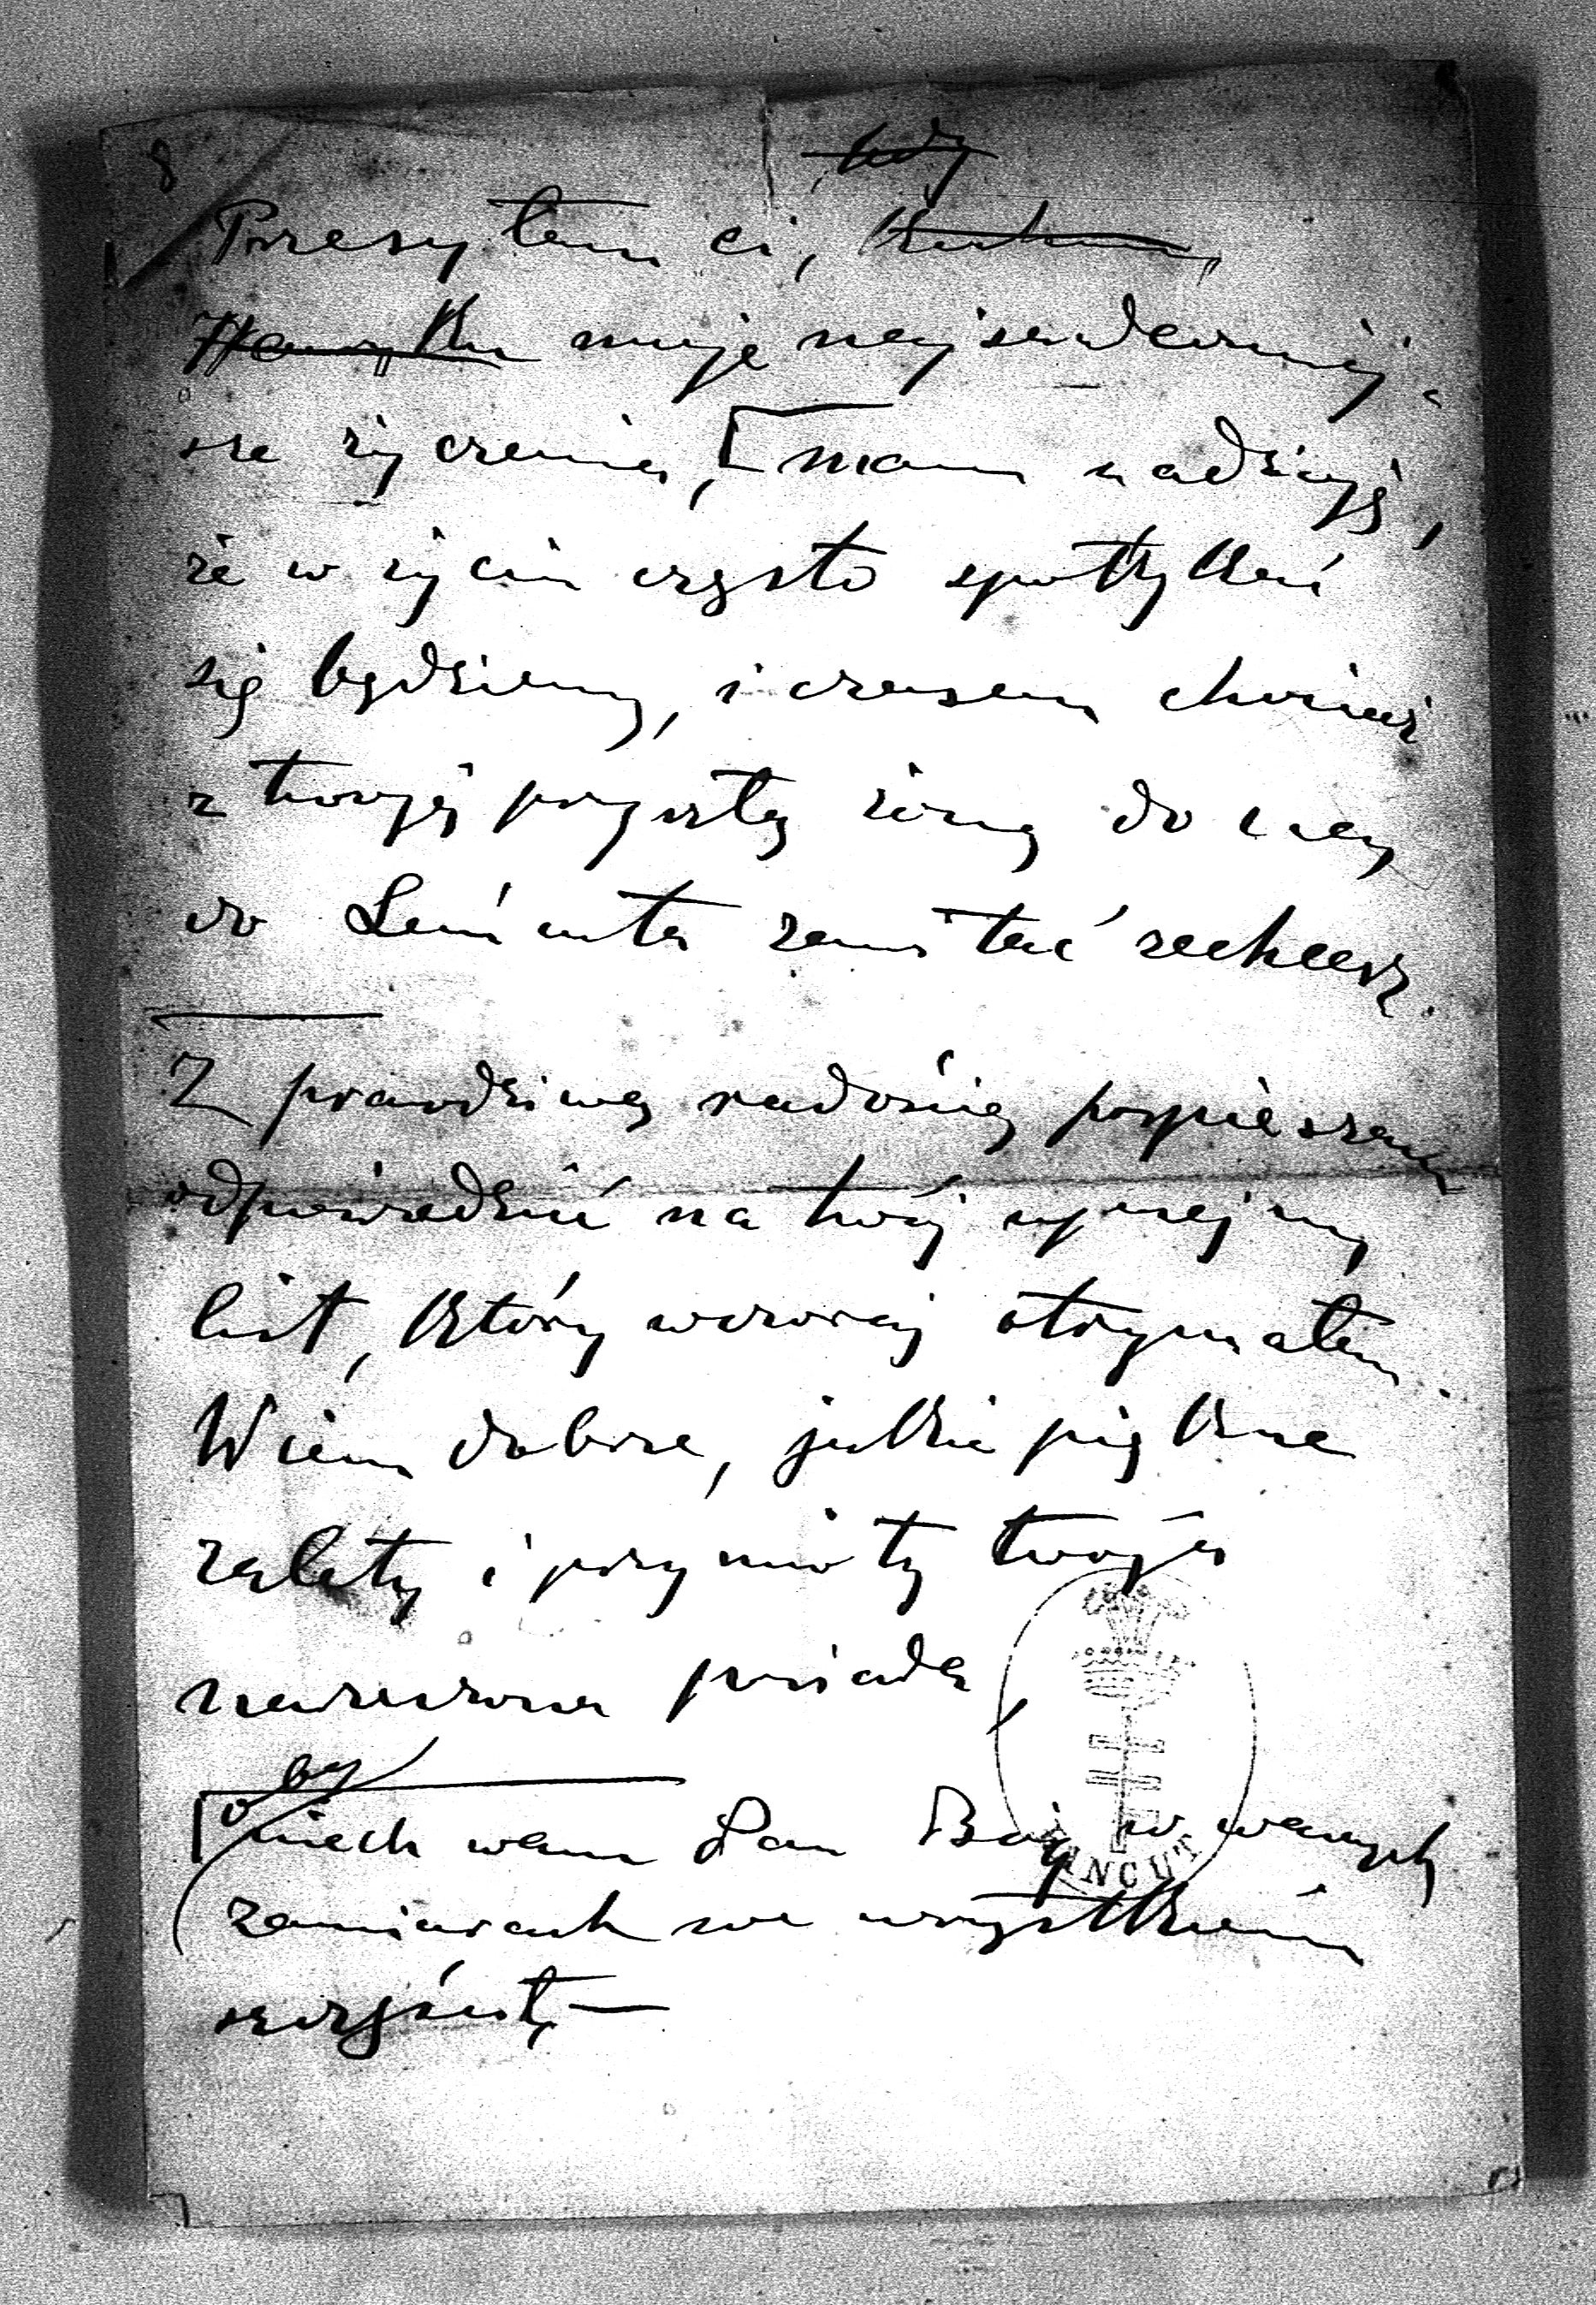 8
Przesyłam ci,
Henryku moje najserdeczniej-
sze życzenia, [mam nadzieję,
że w życiu często spotykać
się będziemy, i czasem chociaż
z twoją przyszłą żoną do nas
do Łańcuta zawitać zechcesz.
Z prawdziwą radością pospieszam
odpowiedzieć na twój uprzejmy
list, który wczoraj otrzymałem.
Wiem dobrze, jakie piękne
zalety i przymioty twoja
narzeczona posiada,
oby
[niech wam Pan Bóg w waszych
zamiarach we wszystkiém
szczęścił —
ŁAŃCUT